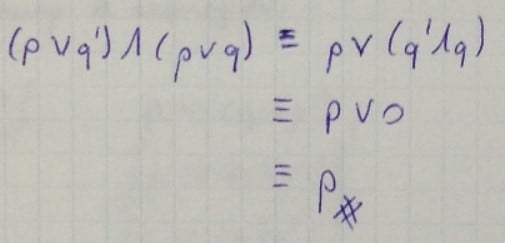 (p ∨ q') ∧ (p ∨ q) ≡ p ∨ (q' ∧ q)
≡ p ∨ 0
≡ p #